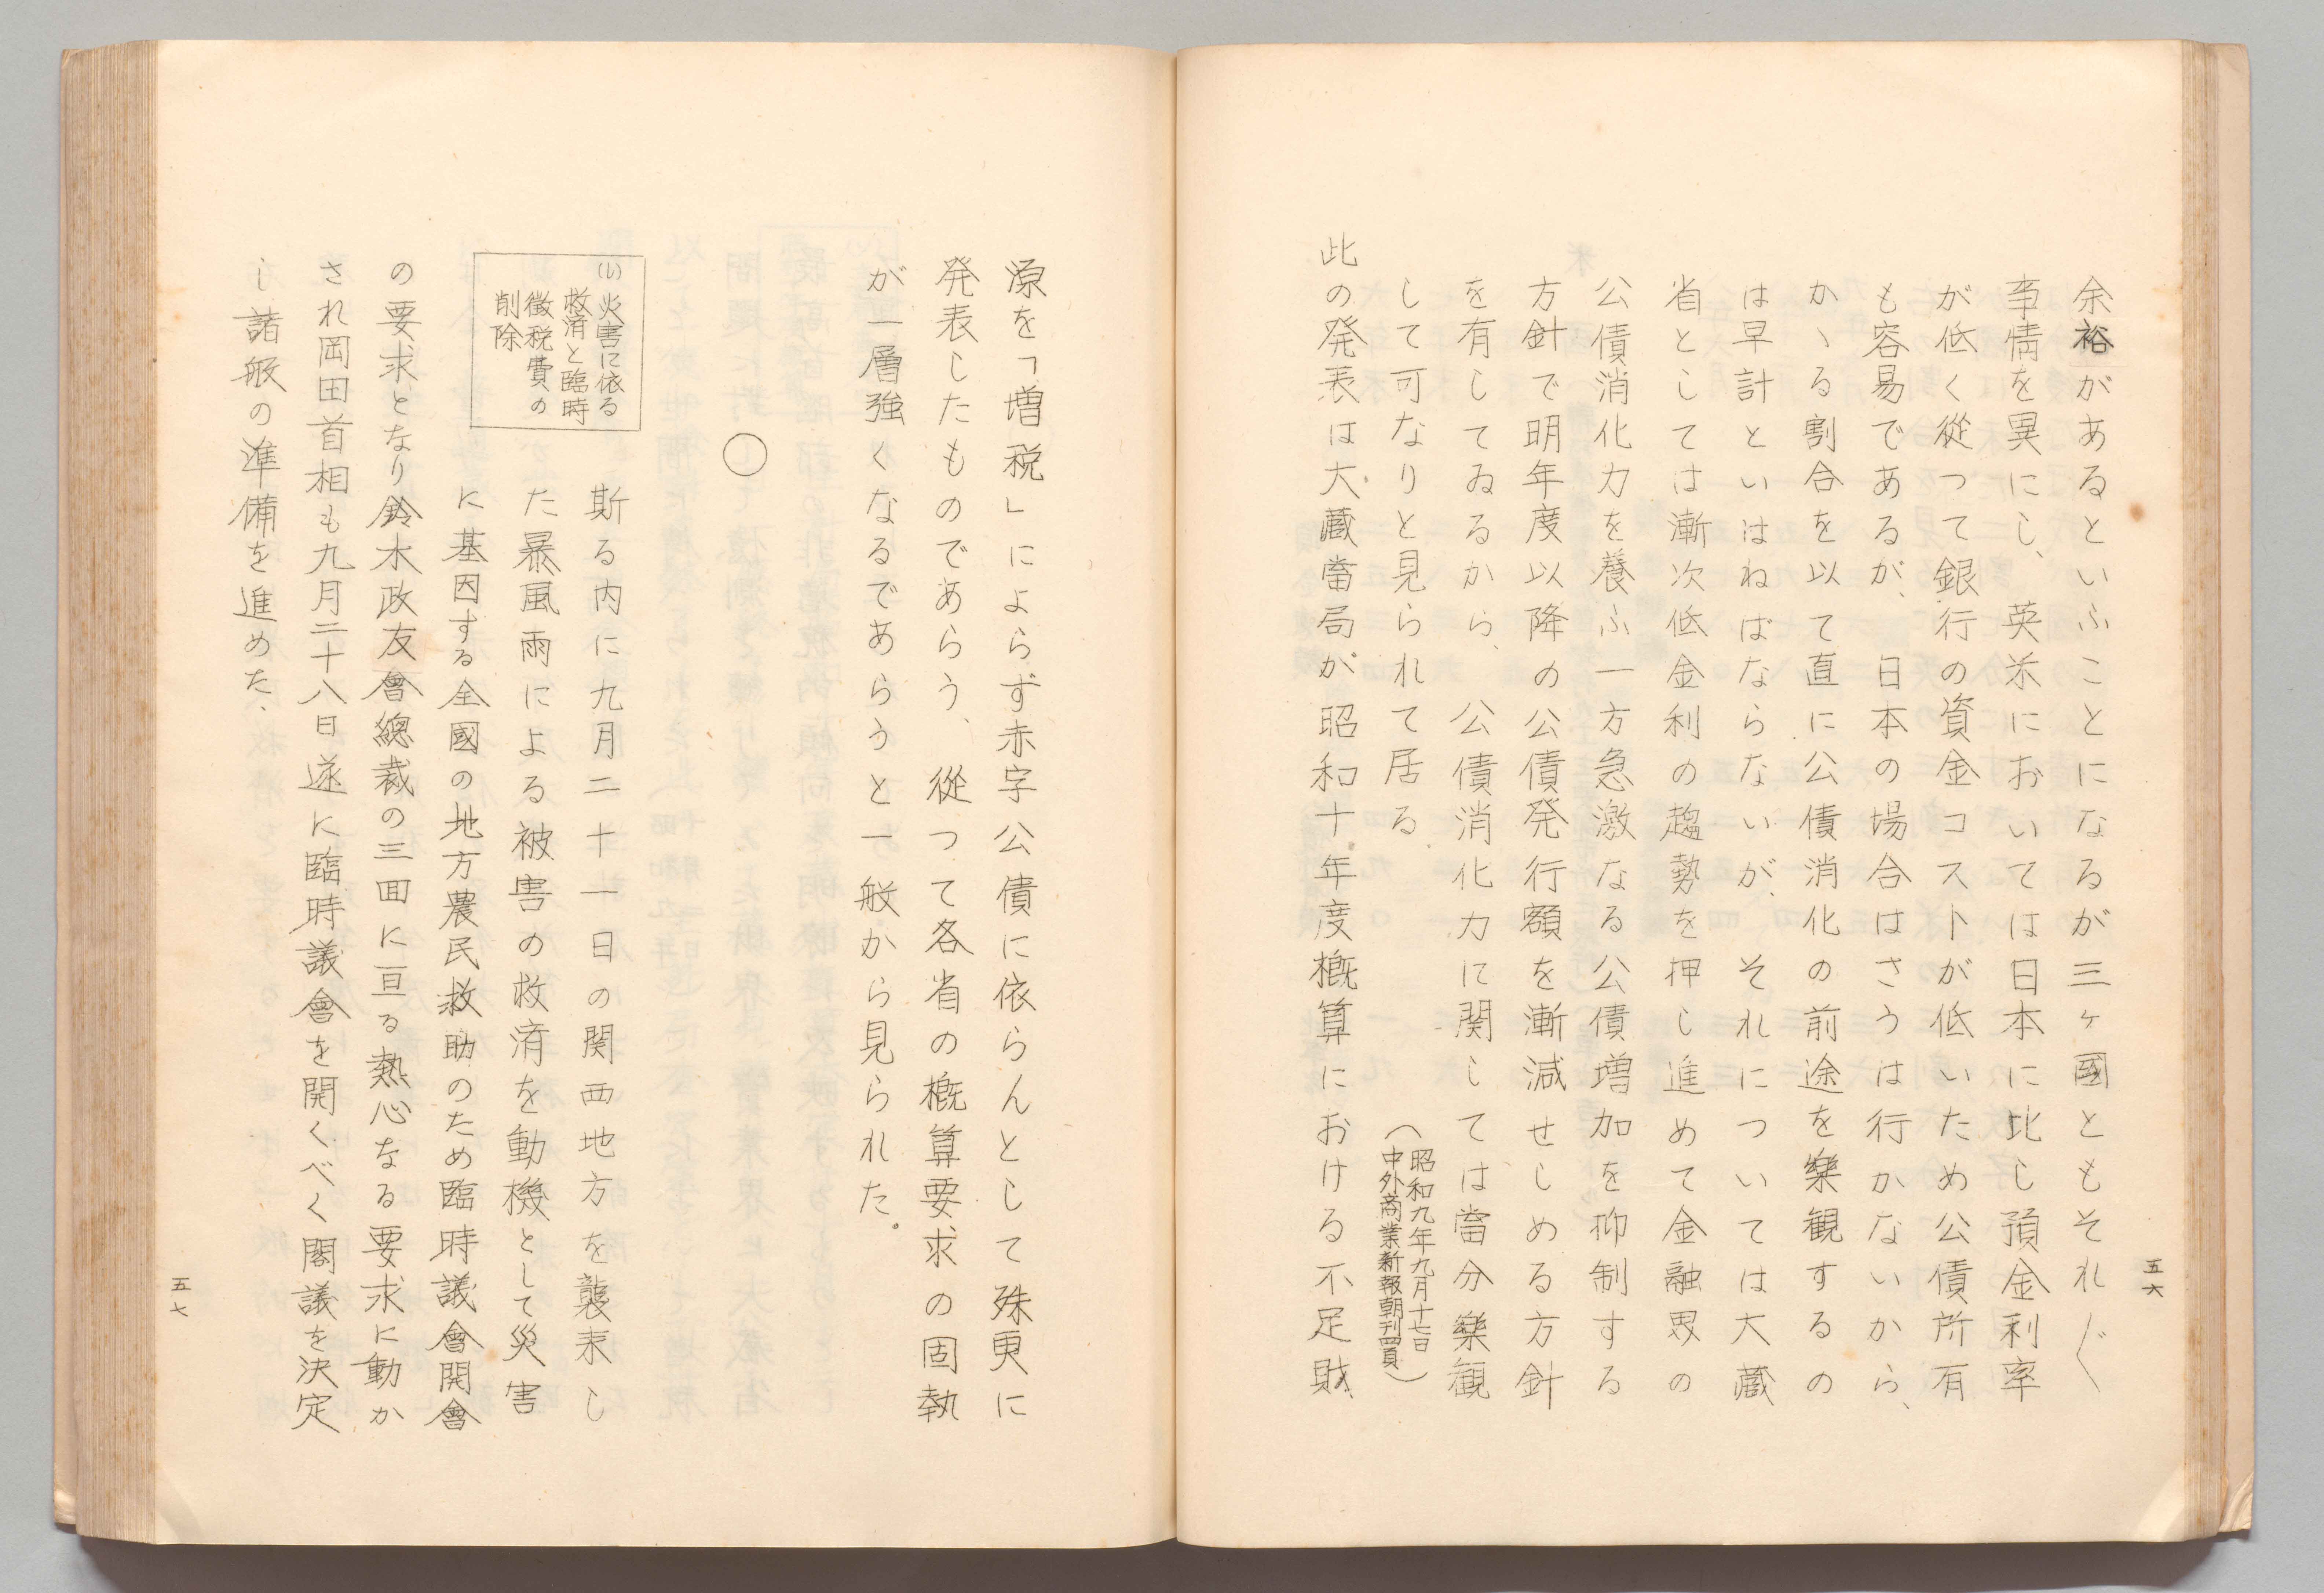 余裕があるといふことになるが三ヶ國ともそれ／″＼
事情を異にし、英米においては日本に比し預金利率
が低く從つて銀行の資金コストが低いため公債所有
も容易であるが、日本の場合はさうは行かないから、
かゝる割合を以て直に公債消化の前途を樂観するの
は早計といはねばならないが、それについては大藏
省としては漸次低金利の趨勢を押し進めて金融界の
公債消化力を養ふ一方急激なる公債増加を抑制する
方針で明年度以降の公債発行額を漸減せしめる方針
を有してゐるから、公債消化力に関しては當分樂観
して可なりと見られて居る
（昭和九年九月十七日
中外商業新報朝刊四頁）
此の発表は大藏當局が昭和十年度概算における不足財
五六
源を「増税」によらず赤字公債に依らんとして殊更に
発表したものであらう、從つて各省の概算要求の固執
が一層強くなるであらうと一般から見られた。
○
(い)火害に依る
救済と臨時
徴税費の
削除
斯る内に九月二十一日の関西地方を襲来し
た暴風雨による被害の救済を動機として災害
に基因する全國の地方農民救助のため臨時議會開會
の要求となり鈴木政友會總裁の三面に亘る熱心なる要求に動か
され岡田首相も九月二十八日遂に臨時議會を開くべく閣議を決定
し諸般の準備を進めた、
五七